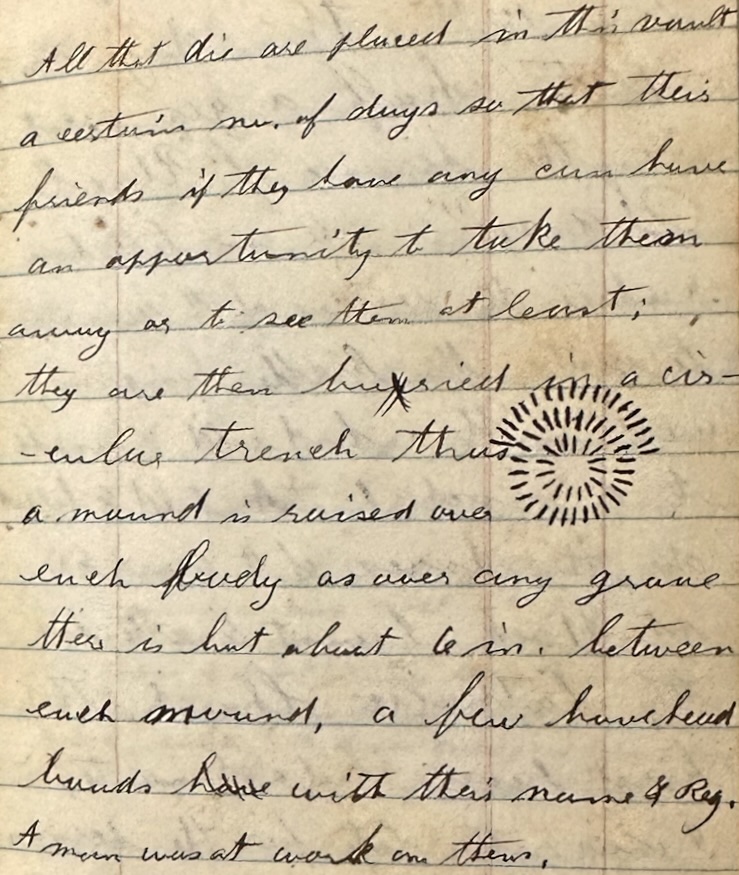 All that die are placed in this vault
a certain no. of days so that their
friends if they have any can have
an opportunity to take them
away or to see them at least;
they are then buried in a cir-
-cular trench thus
a mound is raised over
each body as over any grave
there is but about 6 in. between
each mound, a few have head
boards have with their name & Reg.
A man was at work on them.